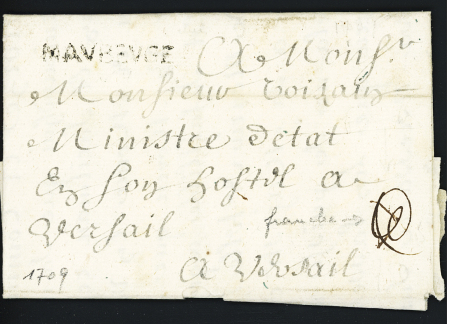 MAVBEVGE
A Monsr
Monsieur Voisain
Ministre detat
En son hostel a
Versail
franche
1709
A Versail